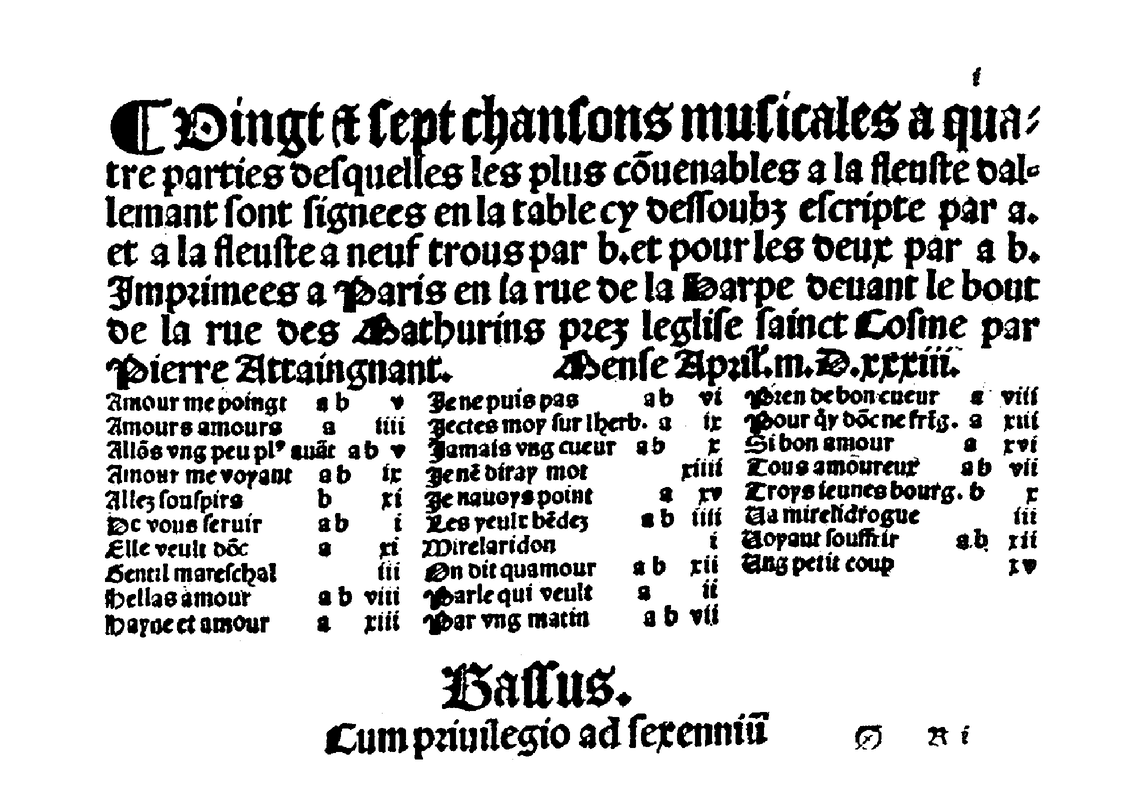 i
¶ Vingt et sept chansons musicales a qua-
tre parties desquelles les plus cõuenables a la fleuste dal-
lemant sont signees en la table cy dessoubz escripte par a.
et a la fleuste a neuf trous par b. et pour les deux par a b.
Imprimees a Paris en la rue de la Harpe deuant le bout
de la rue des Mathurins prez leglise sainct Cosme par
Pierre Attaingnant. Mense April. m. D. xxxiii.
Amour me poingt a b v
Amours amours a iiii
Allõs vng peu pl⁹ auãt a b v
Amour me voyant a b ix
Allez souspirs b xi
De vous seruir a b i
Elle veult dõc a xi
Gentil mareschal iii
Hellas amour a b viii
Hayne et amour a xiii
Je ne puis pas a b vi
Jectes moy sur lherb. a ix
Jamais vng cueur a b x
Je nẽ diray mot xiiii
Je nauoys point a xv
Les yeulx bẽdez a b iiii
Mirelaridon i
On dit quamour a b xii
Parle qui veult a ii
Par vng matin a b vii
Pren de bon cueur a viii
Pour q̃y dõc ne frig. a xiii
Si bon amour a xvi
Tous amoureux a b vii
Troys ieunes bourg. b x
Va mirelidrogue iii
Voyant souffrir a b xii
Vng petit coup xv
Bassus.
Cum priuilegio ad sexenniũ R i